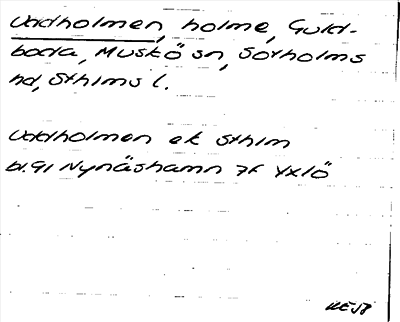 Vadholmen, holme, Guld-
boda, Muskö sn, Sotholms
hd, Sthlms l.
Vadholmen ek Sthlm
bl.91 Nynäshamn 7f Yxlö